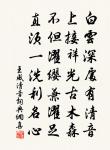 白雲深處有清音
上接祥光古木森
不但濯纓兼濯足
直須一洗利名心
王威清音詞典網集